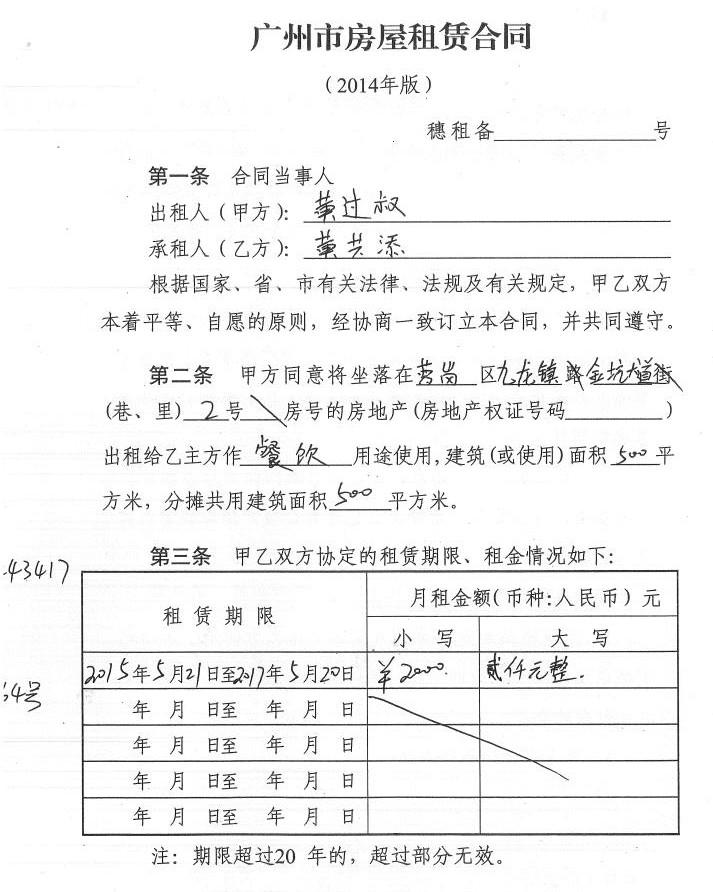 广州市房屋租赁合同
（2014年版）
穗租备 号
第一条 合同当事人
出租人（甲方）：黄过叔
承租人（乙方）：黄共添
根据国家、省、市有关法律、法规及有关规定，甲乙双方
本着平等、自愿的原则，经协商一致订立本合同，并共同遵守。
第二条 甲方同意将坐落在 萝岗 区九龙镇 路金坑大道街
(巷、里) 2号 房号的房地产(房地产权证号码 )
出租给乙主方作 餐饮 用途使用,建筑(或使用)面积 500 平
方米，分摊共用建筑面积 500 平方米。
第三条 甲乙双方协定的租赁期限、租金情况如下：
43417
租赁期限
月租金额(币种:人民币)元
小写 大写
2015年5月21日至2017年5月20日 ¥2000. 贰仟元整.
4号
年 月 日至 年 月 日
年 月 日至 年 月 日
年 月 日至 年 月 日
年 月 日至 年 月 日
注：期限超过20 年的，超过部分无效。